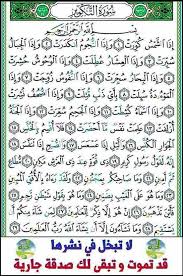 سُورَةُ التَّكْوِيرِ
بِسْمِ اللَّهِ الرَّحْمَٰنِ الرَّحِيمِ
إِذَا الشَّمْسُ كُوِّرَتْ ١ وَإِذَا النُّجُومُ انكَدَرَتْ ٢ وَإِذَا الْجِبَالُ
سُيِّرَتْ ٣ وَإِذَا الْعِشَارُ عُطِّلَتْ ٤ وَإِذَا الْوُحُوشُ حُشِرَتْ ٥
وَإِذَا الْبِحَارُ سُجِّرَتْ ٦ وَإِذَا النُّفُوسُ زُوِّجَتْ ٧ وَإِذَا الْمَوْءُۥدَةُ
سُئِلَتْ ٨ بِأَيِّ ذَنۢبٍ قُتِلَتْ ٩ وَإِذَا الصُّحُفُ نُشِرَتْ ١٠ وَإِذَا السَّمَآءُ
كُشِطَتْ ١١ وَإِذَا الْجَحِيمُ سُعِّرَتْ ١٢ وَإِذَا الْجَنَّةُ أُزْلِفَتْ ١٣
عَلِمَتْ نَفْسٌ مَّآ أَحْضَرَتْ ١٤ فَلَآ أُقْسِمُ بِالْخُنَّسِ ١٥ الْجَوَارِ الْكُنَّسِ
١٦ وَالَّيْلِ إِذَا عَسْعَسَ ١٧ وَالصُّبْحِ إِذَا تَنَفَّسَ ١٨ إِنَّهُۥ لَقَوْلُ رَسُولٍ كَرِيمٍ
١٩ ذِى قُوَّةٍ عِندَ ذِى الْعَرْشِ مَكِينٍ ٢٠ مُّطَاعٍ ثَمَّ أَمِينٍ ٢١ وَمَا صَاحِبُكُم
بِمَجْنُونٍ ٢٢ وَلَقَدْ رَءَاهُ بِالْأُفُقِ الْمُبِينِ ٢٣ وَمَا هُوَ عَلَى الْغَيْبِ
بِضَنِينٍ ٢٤ وَمَا هُوَ بِقَوْلِ شَيْطَٰنٍ رَّجِيمٍ ٢٥ فَأَيْنَ تَذْهَبُونَ
٢٦ إِنْ هُوَ إِلَّا ذِكْرٌ لِّلْعَٰلَمِينَ ٢٧ لِمَن شَآءَ مِنكُمْ أَن يَسْتَقِيمَ
٢٨ وَمَا تَشَآءُونَ إِلَّآ أَن يَشَآءَ اللَّهُ رَبُّ الْعَٰلَمِينَ ٢٩
لا تبخل في نشرها
قد تموت و تبقى لك صدقة جارية